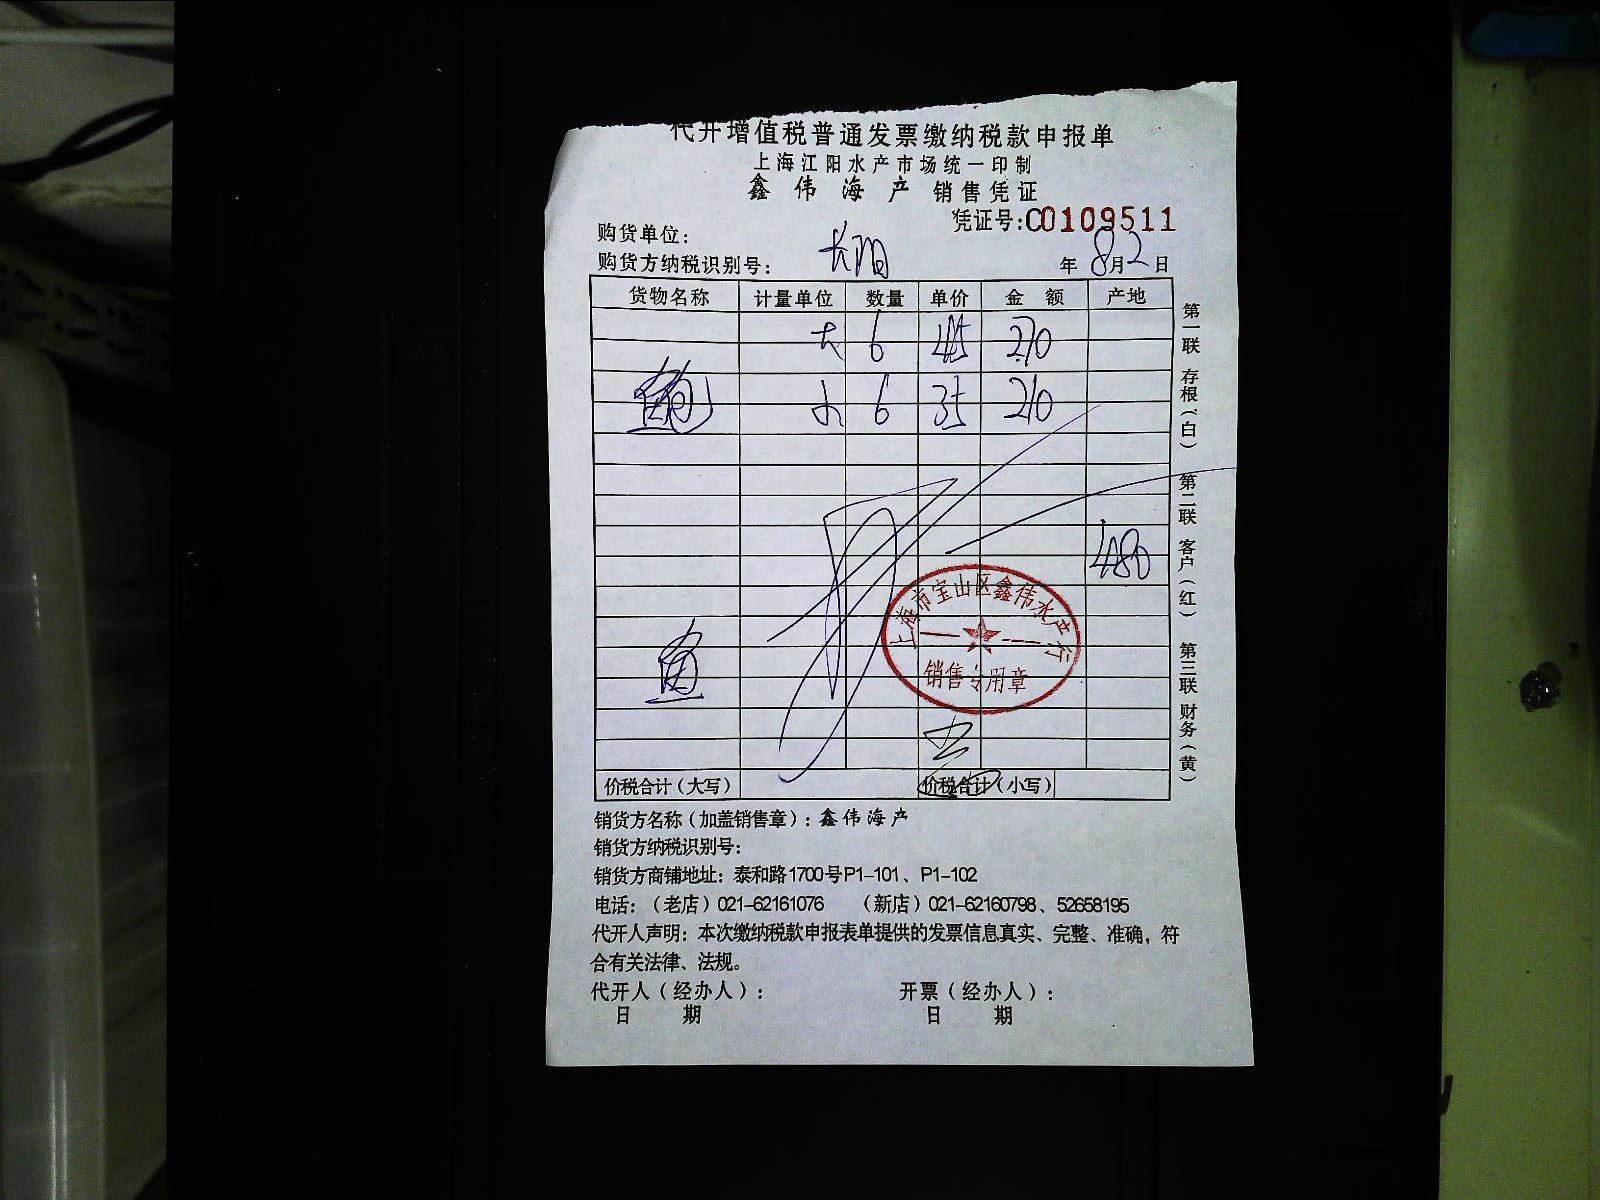 代开增值税普通发票缴纳税款申报单
上海江阳水产市场统一印制
鑫伟海产 销售凭证
凭证号:C0109511
购货单位:
购货方纳税识别号: 长阳 年 8月2日
货物名称 计量单位 数量 单价 金额 产地
大 6 45 270
鲍 小 6 35 210
480
上海市宝山区鑫伟水产行
销售专用章
价税合计(大写) 价税合计(小写)
第一联 存根(白) 第二联 客户(红) 第三联 财务(黄)
销货方名称(加盖销售章):鑫伟海产
销货方纳税识别号:
销货方商铺地址:泰和路1700号P1-101、P1-102
电话:(老店)021-62161076 (新店)021-62160798、52658195
代开人声明:本次缴纳税款申报表单提供的发票信息真实、完整、准确,符
合有关法律、法规。
代开人(经办人): 开票(经办人):
日 期 日 期